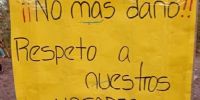 ¡¡No mas daño!!
Respeto a
nuestros